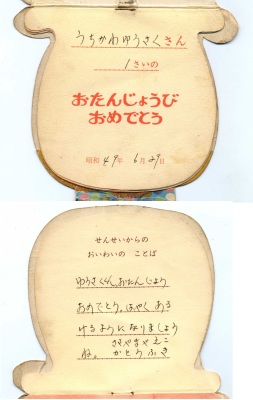 うちかわゆうさくさん
1さいの
おたんじょうび
おめでとう
昭和49年6月29日
せんせいからの
おいわいの ことば
ゆうさくくん、おたんじょう
おめでとう。はやく ある
けるようになりましょう
ね。
かとう ふき